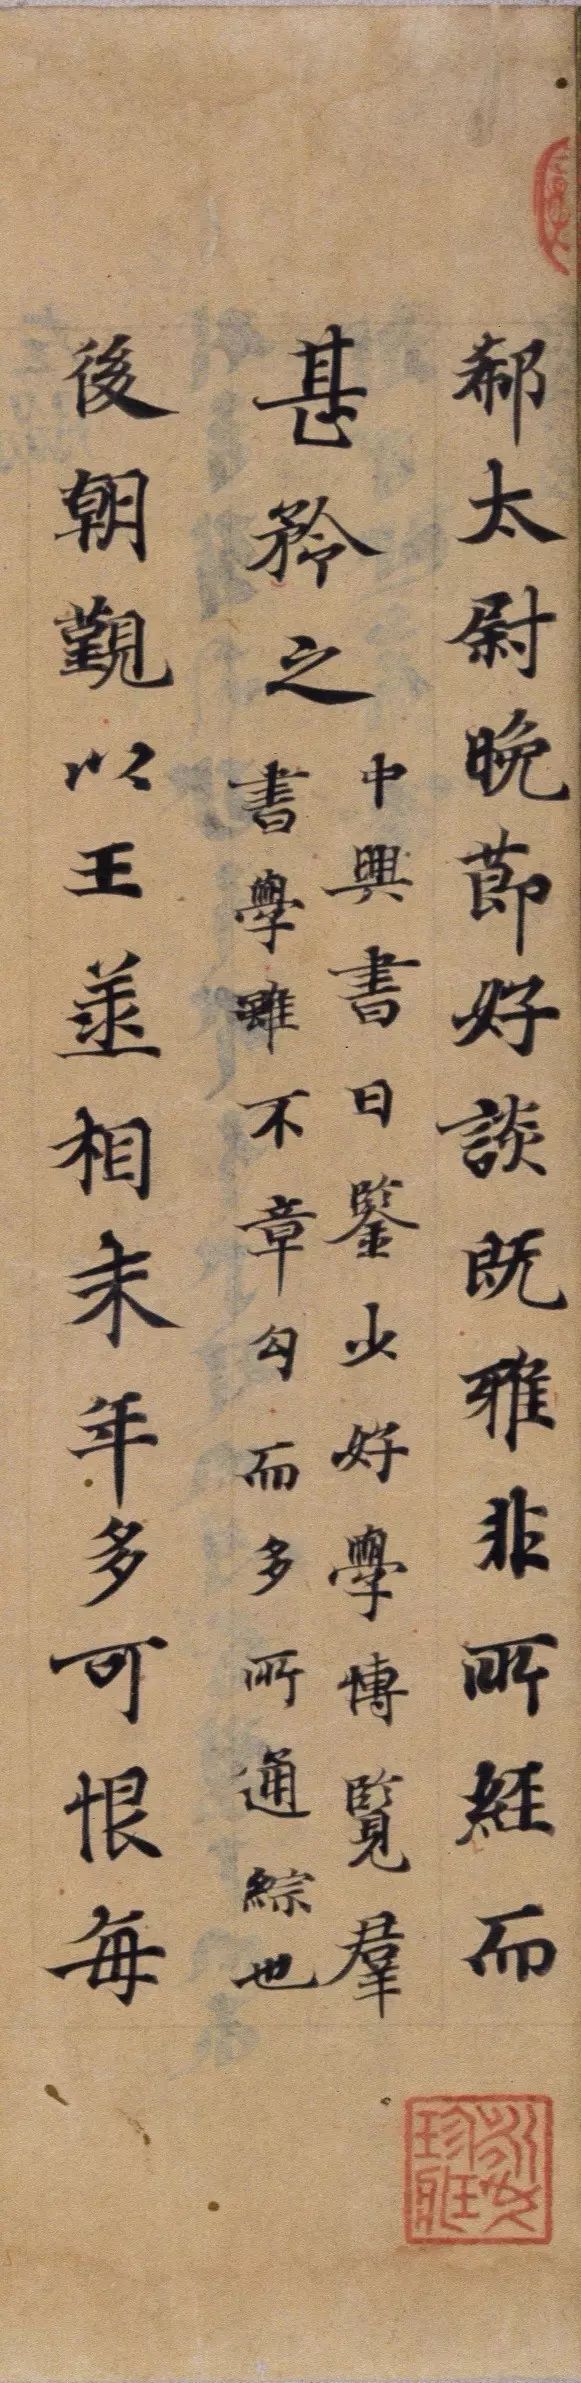 郗太尉晚節好談既雅非所經而
甚矜之
中興書曰鑒少好學博覽羣
書學雖不章勾而多所通綜也
後朝覲以王丞相末年多可恨每